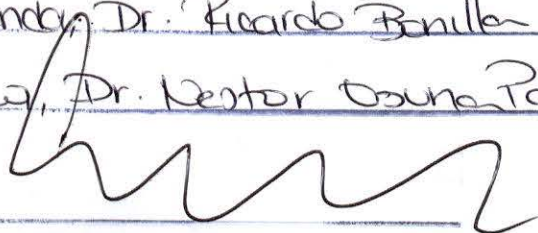 Dr. Ricardo Bonilla
Dr. Nestor Osuna